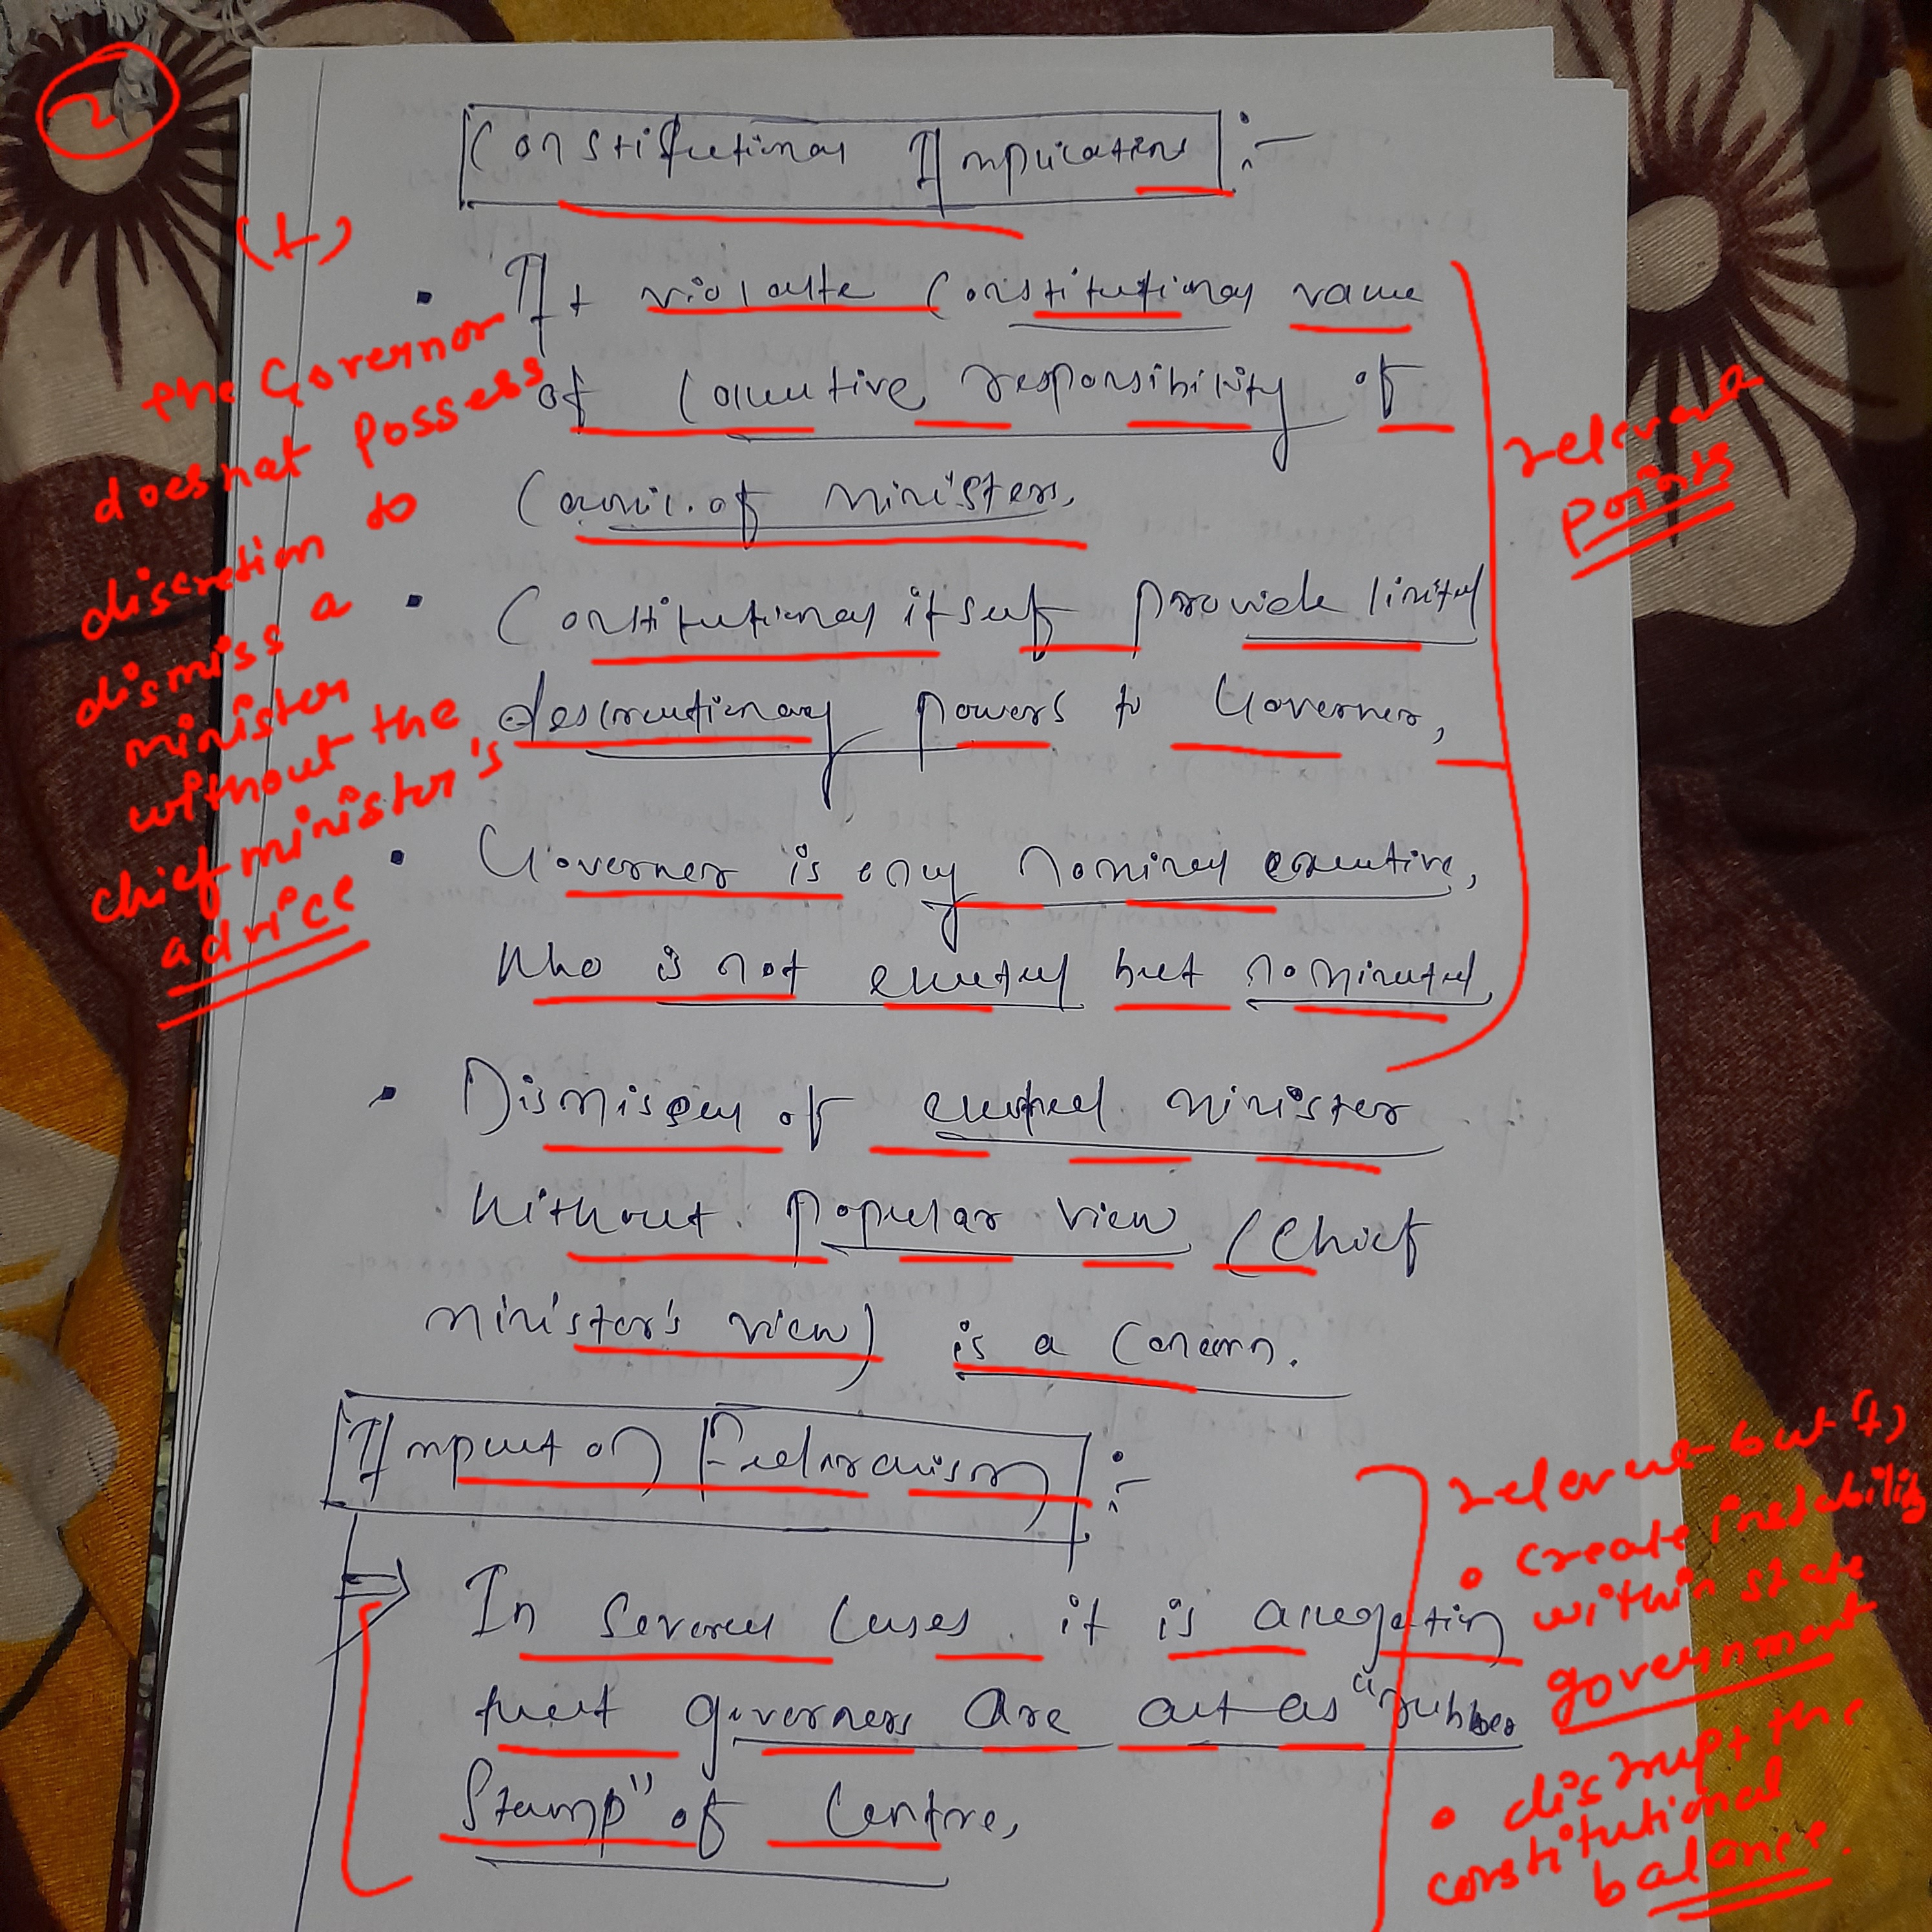 2
Constitutional Implications :-
(+)
the Governor
does not possess
discretion to
dismiss a
minister
without the
chief minister's
advice
• It violate Constitutional value
of Collective responsibility of
Counc. of ministers.
• Constitutional itself provide limited
descreutionary powers to Governer,
• Governer is only nominal executive,
who is not elected but nominated
relevant
points
• Dismissal of elected minister
without popular view (Chief
minister's view) is a concern.
Impact on Federalism :-
⇒ In several cases it is allegation
that governers are act as "rubber
Stamp" of Centre,
relevant but (+)
• create instability
within state
government
• disrupt the
constitutional
balance.